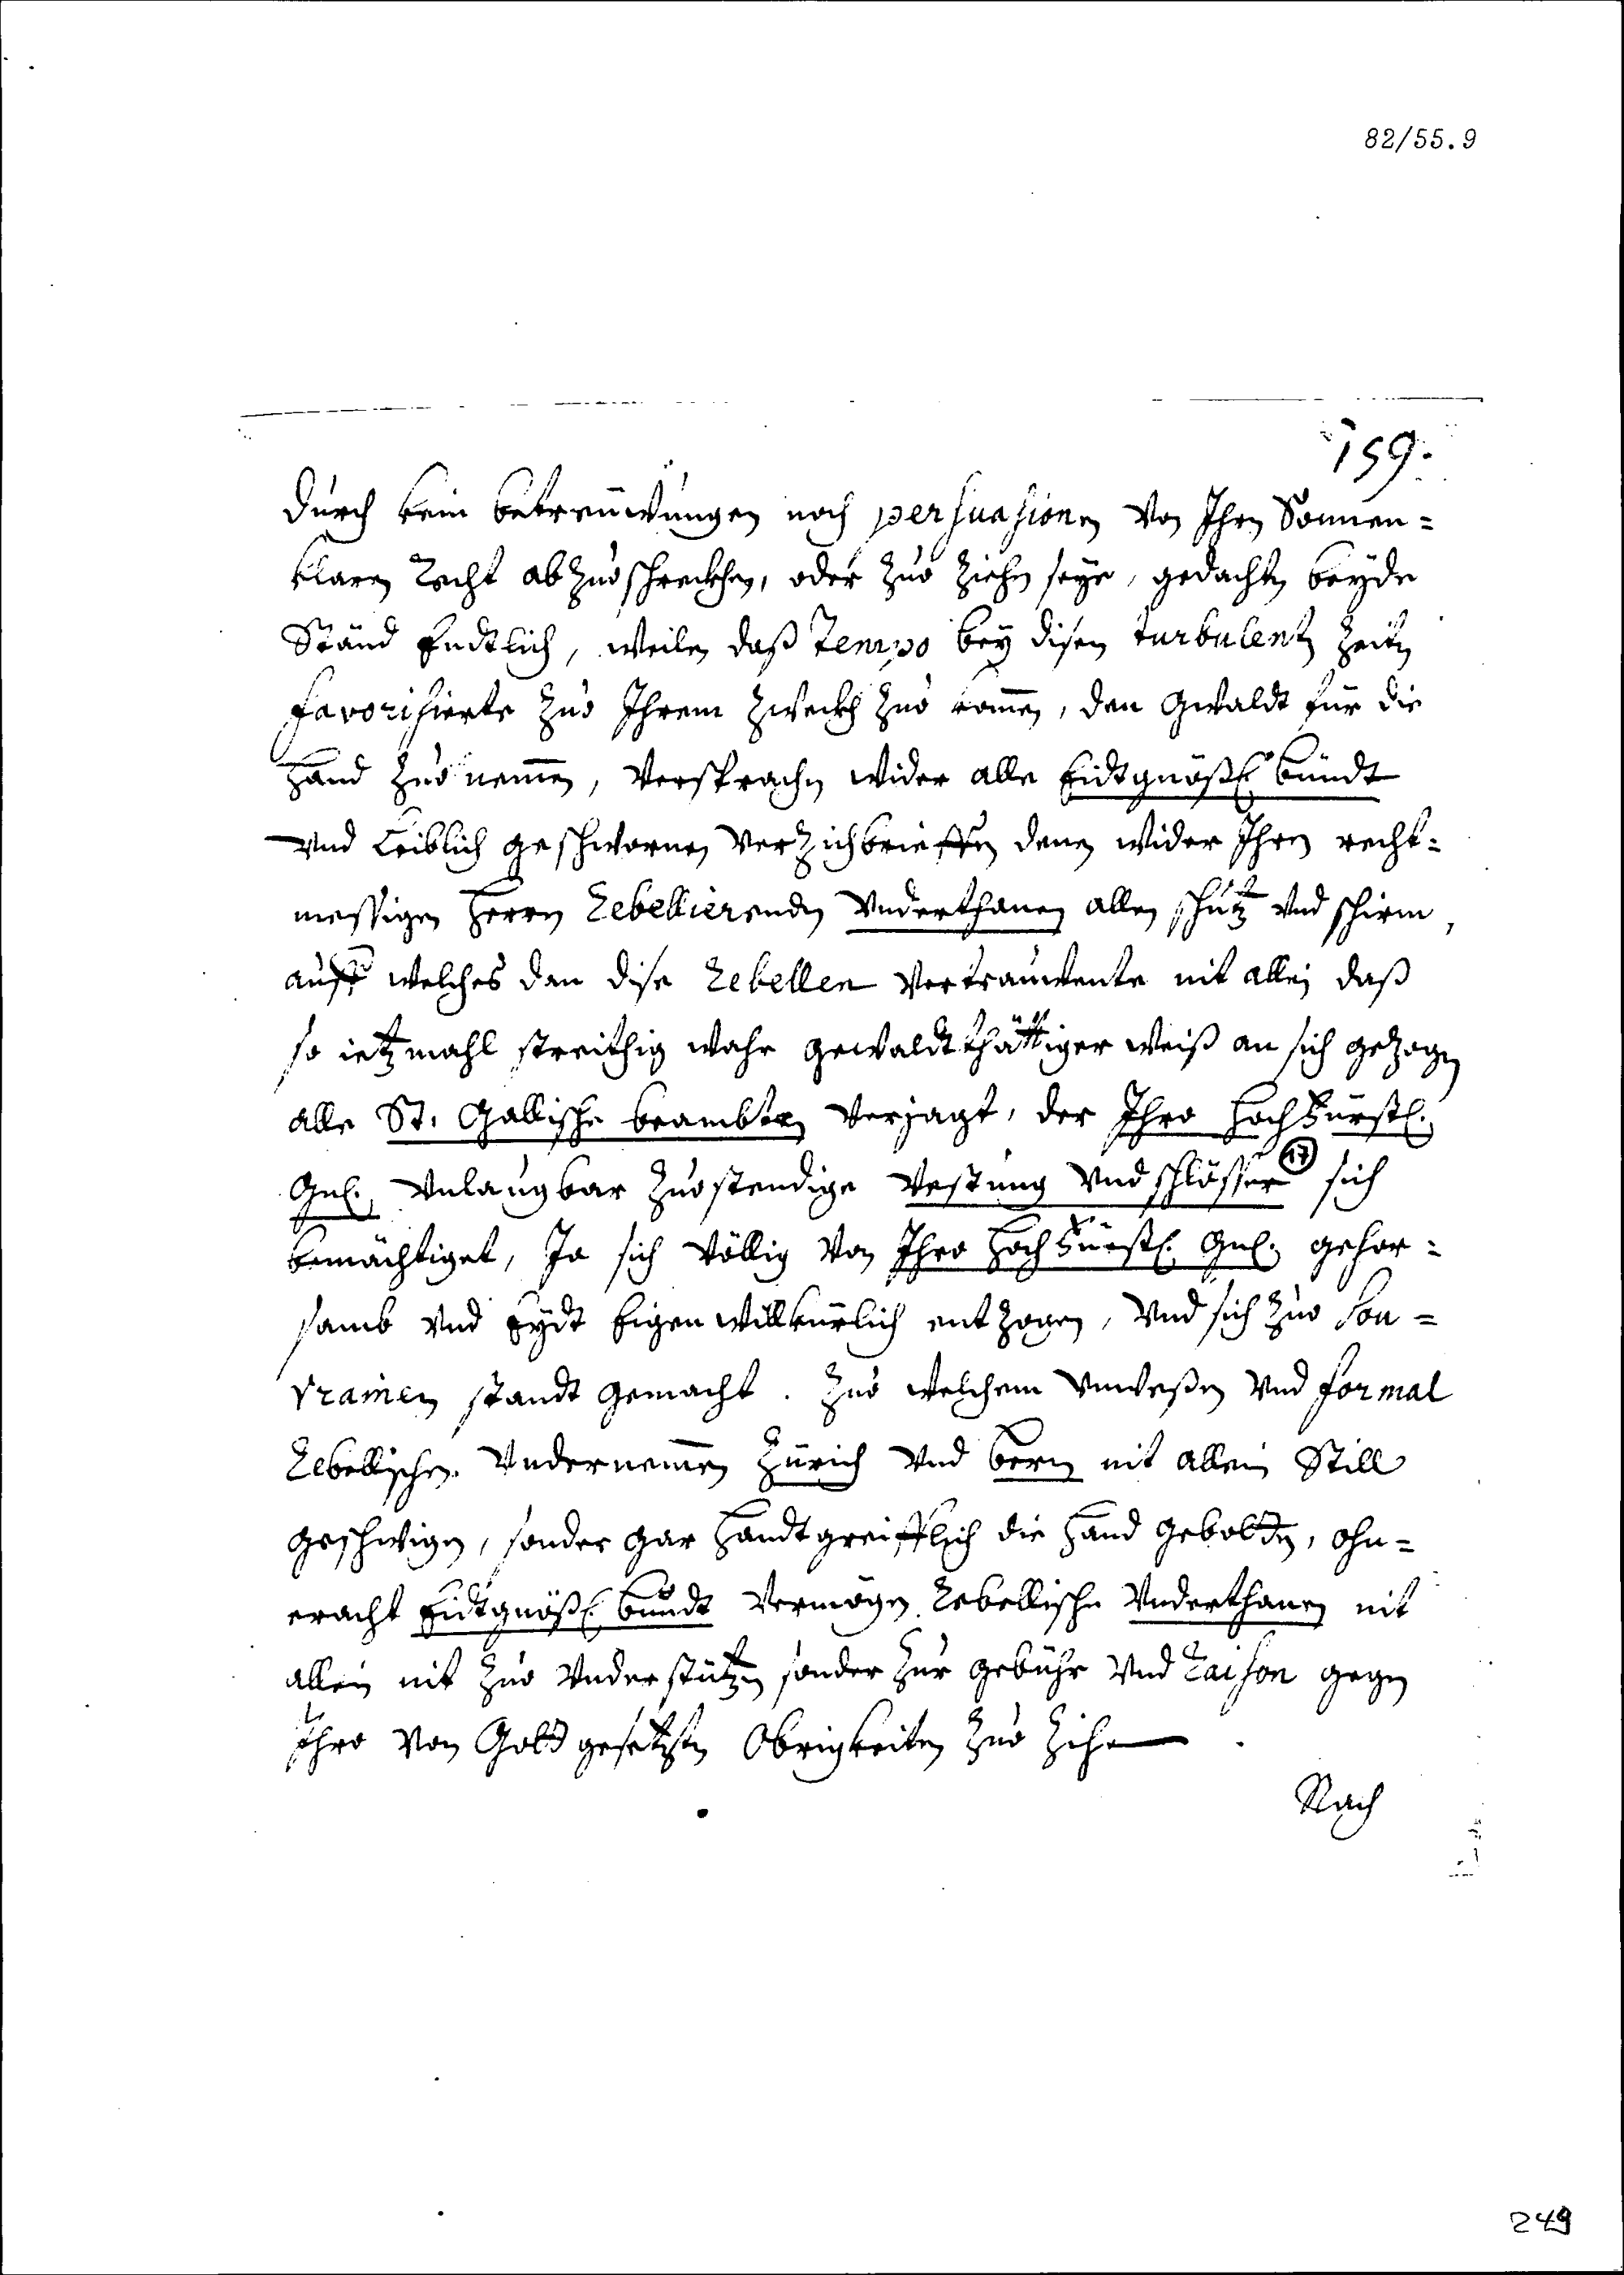 82/55.9
159.
durch kein betreuwungen noch persuasionen von Ihren Sonnen=
klaren Recht abzuoschreckhen, oder zuo ziehen seye, gedachten beyde
Ständ Endtlich, weilen daß Tempo bey disen turbulenten Zeiten
favorisierte zuo Ihrem Zweckh zuo kom̄en, den Gwaldt für die
Hand zuo nem̄en, versprachen wider alle Eidtgnößl. bündt
vnd Leiblich geschwornen verzichbrieffen denen wider Ihren recht=
messigen Herrn Rebellierenden Vnderthanen allen schutz vnd schirm,
auff welches dan dise Rebellen vertrauwente nit allein daß
so ietzmahl streithig wahr gewaldtthättiger weiß an sich gezogen
alle St. Gallische beambten verjagt, der Ihro Hochfürstl.
Gnl. vnlaugbar zuostendige Vestung vnd schlösser 17 sich
bemächtiget, Ja sich völlig von Ihro Hochfürstl. Gnl. gehor=
samb vnd Eydt Eigenwillkürlich entzogen, vnd sich zuo sou=
vrainen standt gemacht. Zuo welchem vnweßen vnd formal
Rebellischen Vndernem̄en Zürich vnd Bern nit allein Still
geschwigen, sonder gar Handtgreifflich die Hand gebotten, ohn=
eracht Eidtgnößl. bündt vermögen Rebellische Vnderthanen nit
allein nit zuo vnderstützen sonder zur gebühr vnd Raison gegen
Ihro von Gott gesetzten Obrigkeiten zuo zihen.
Nach
249